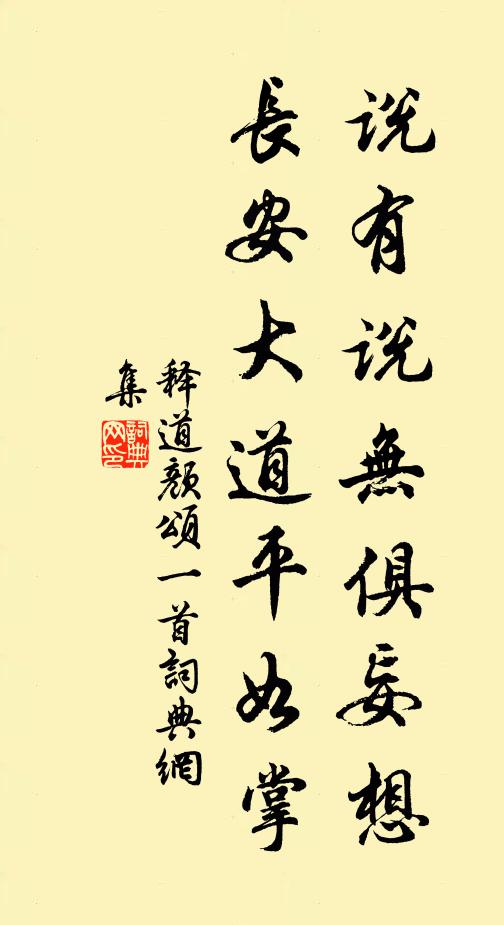 説有説無俱妄想
長安大道平如掌
釋道顏頌一首詞典網
集
詞典
网印